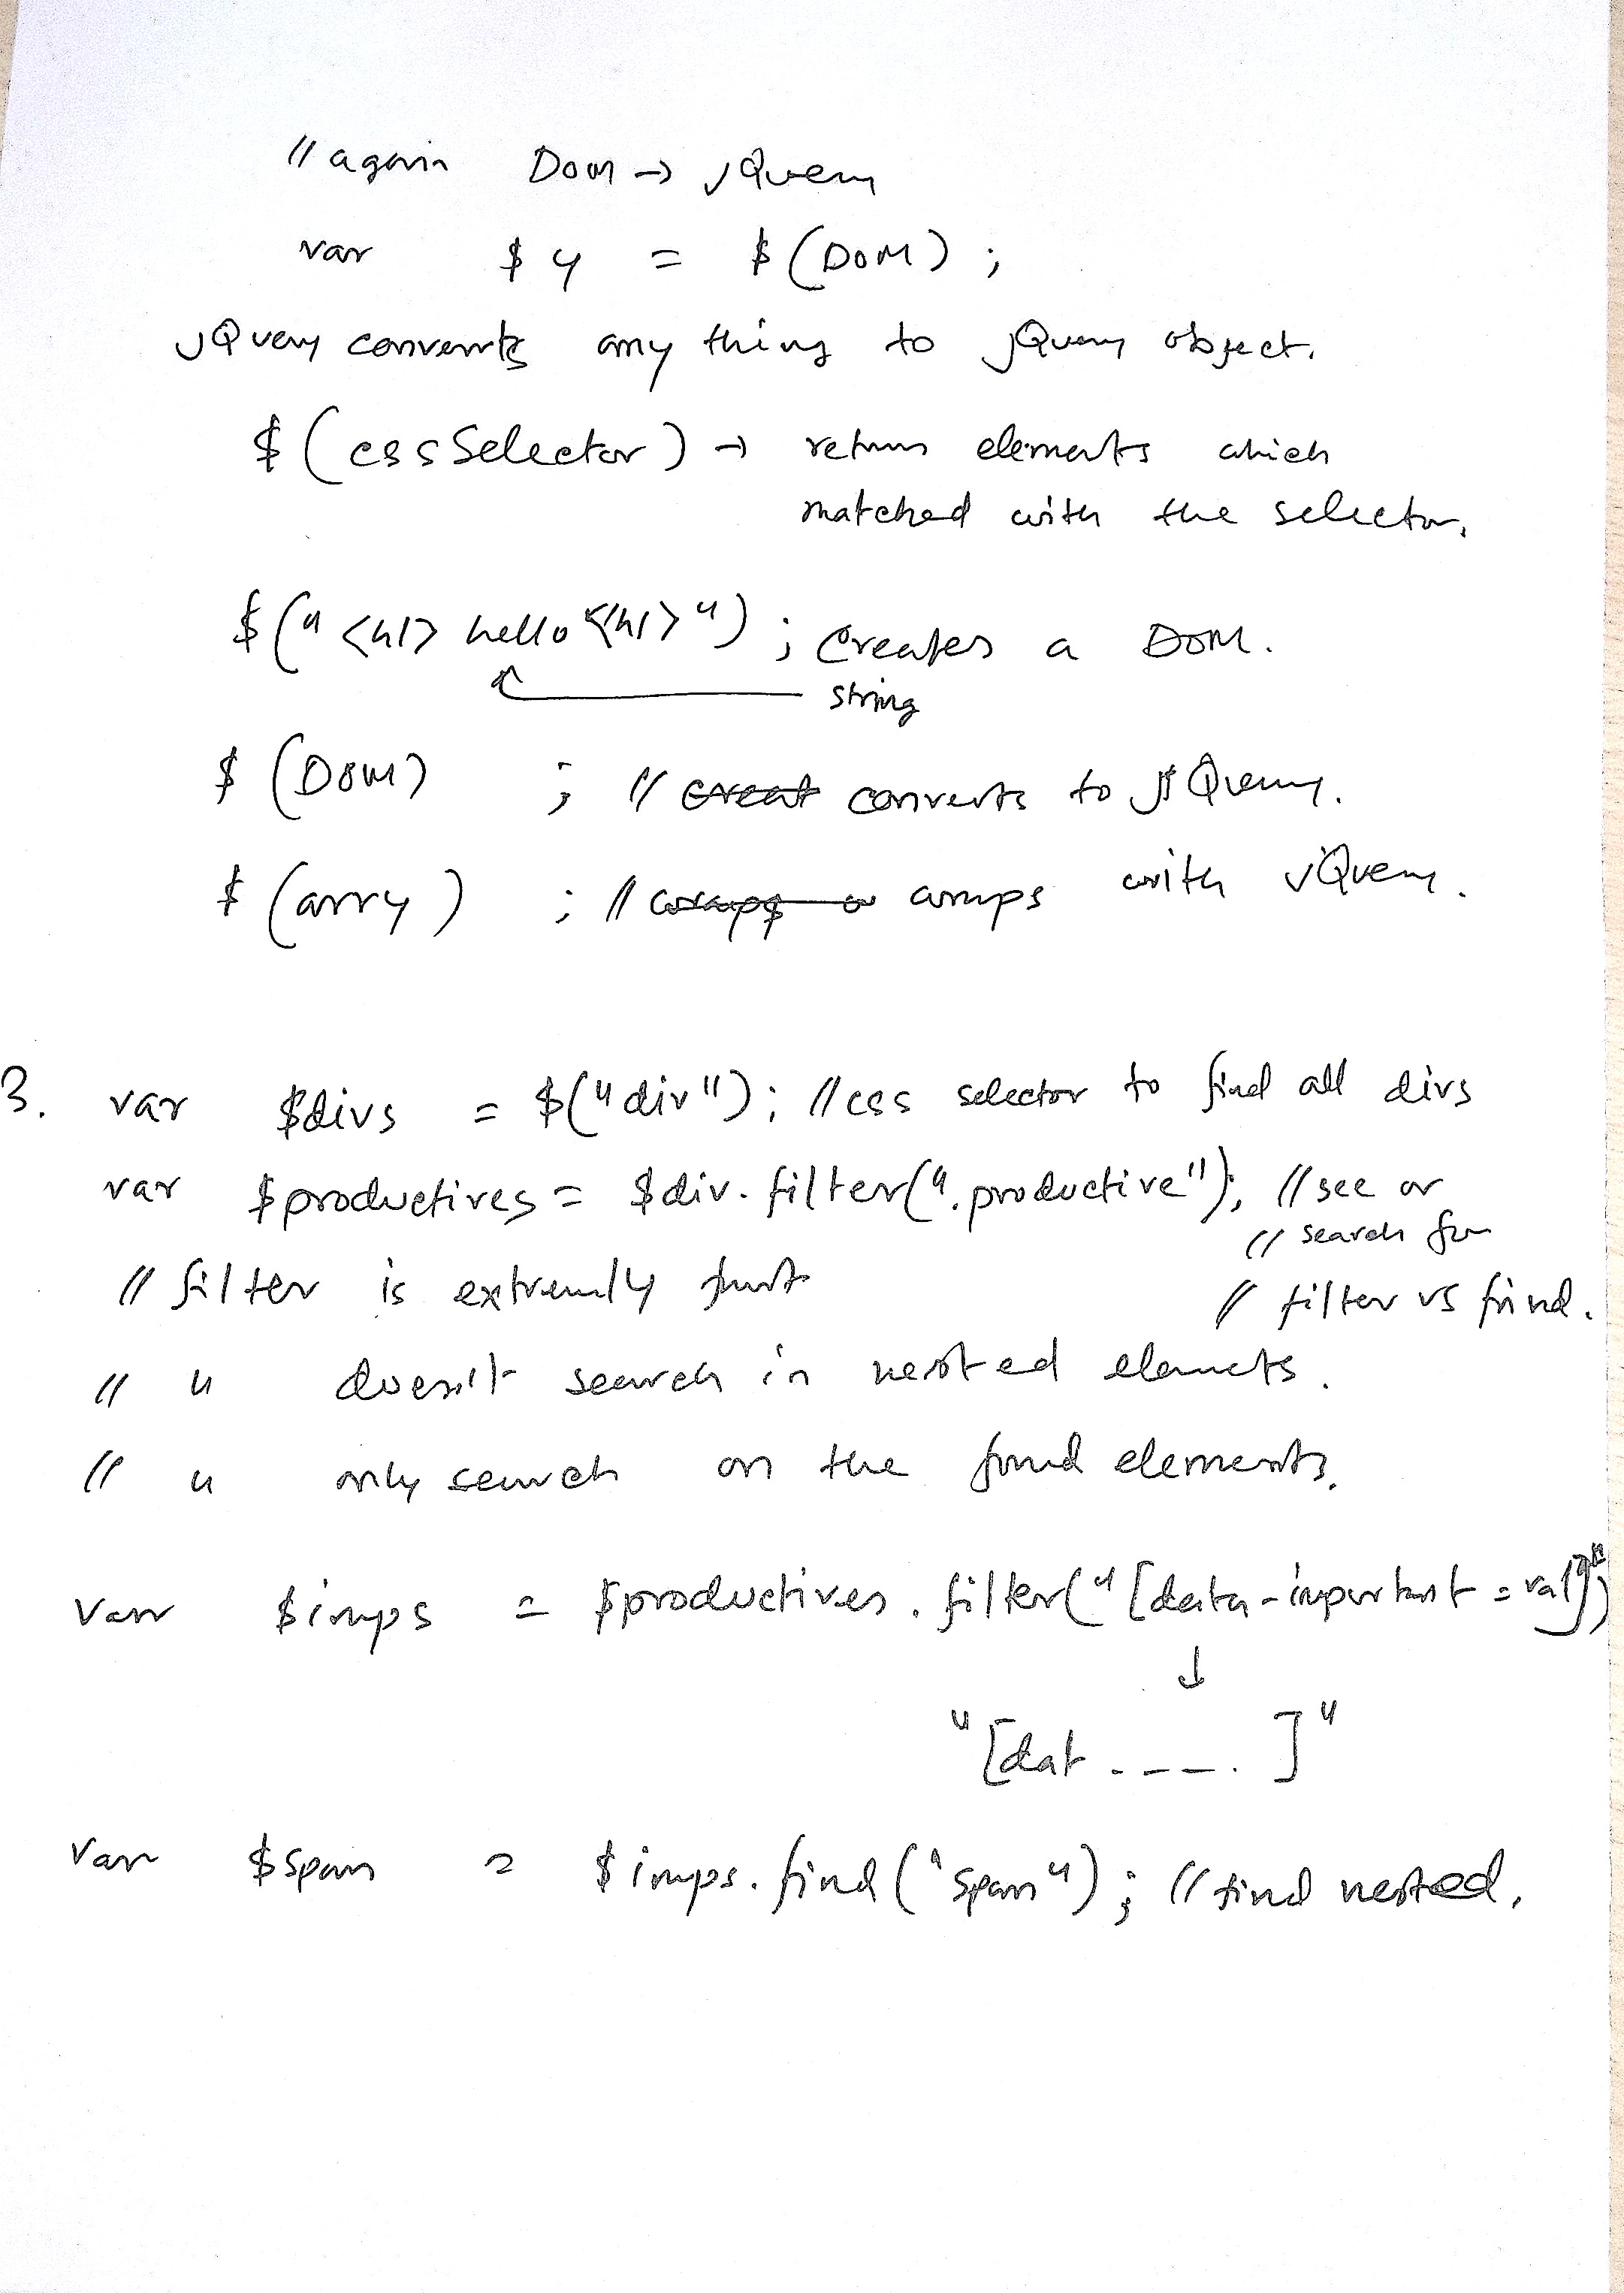 // again DOM → jQuery
var $y = $(DOM);
jQuery converts any thing to jQuery object.
$(cssSelector) → returns elements which
matched with the selector.
$("<h1> hello </h1>"); creates a DOM.
string
$(DOM) ; // creat converts to jQuery.
$(arry) ; // wraps with jQuery.
3. var $divs = $("div"); // css selector to find all divs
var $productives = $div.filter(".productive"); // see or
// search for
// filter is extremly fast
// filter vs find.
// " doesn't search in nested elemets.
// " only search on the found elements.
var $imps = $productives.filter("[data-important=val]")
↓
"[dat ----. ]"
var $span = $imps.find("span"); // find nested.